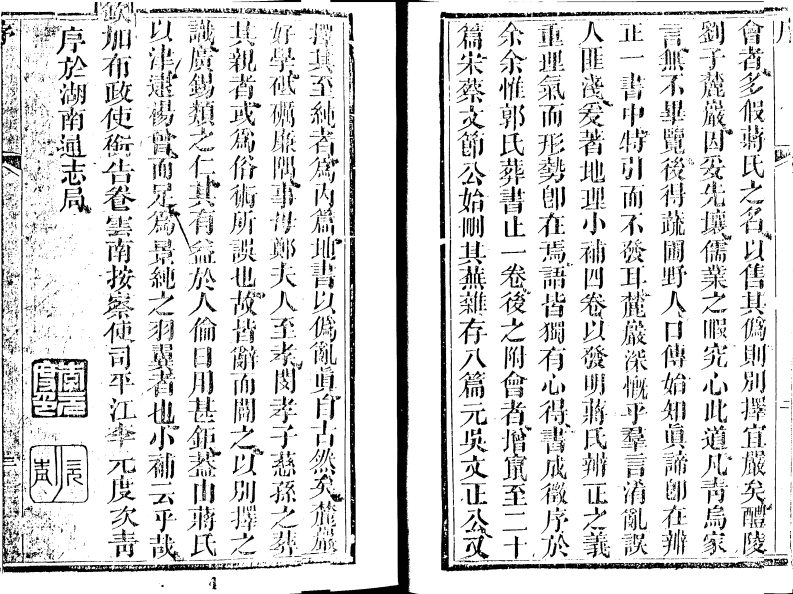 會者多假蔣氏之名以售其偽則別擇宜嚴矣醴陵
劉子麓巖因爰先壤儒業之暇究心此道凡青烏家
言無不畢覽後得疏圃野人口傳始知眞諦卽在辨
正一書中特引而不發耳麓巖深慨乎羣言淆亂誤
人匪淺爰著地理小補四卷以發明蔣氏辨正之義
重理氣而形勢卽在焉語皆獨有心得書成徵序於
余余惟郭氏葬書止一卷後之附會者增竄至二十
篇宋蔡文節公始刪其蕪雜存八篇元吳文正公又
擇其至純者爲內篇地書以僞亂眞自古然矣麓巖
好學砥礪廉隅事母鄭夫人至孝閔孝子慈孫之葬
其親者或爲俗術所誤也故皆辭而闢之以別擇之
識廣錫類之仁其有益於人倫日用甚鉅葢由蔣氏
以津逮楊曾而足爲景純之羽翼者也小補云乎哉
欽加布政使銜告養雲南按察使司平江李元度次青
序於湖南通志局
序
序
二
三
4